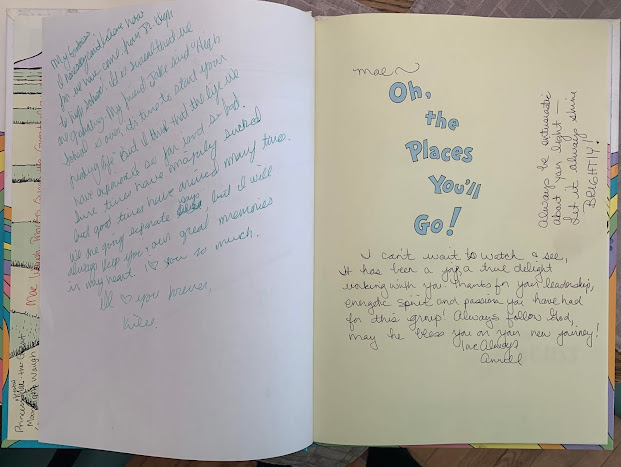 My goodness,
I honestly can't believe how
far we have come from Jr. High
to high school. It is surreal that we
are graduating. My friend Jake said "High
School is over, its time to start your
fucking life" But I think that the life we
have
so far isnt so bad.
Sure times have majorly sucked
but good times have
many times.
We are going separate ways but I will
always keep you & our great memories
in my heart. I ♡ you so much.
I'll ♡ you forever,
mae~
Oh,
the
Places
You'll
Go!
Always be enthusiastic
about your light —
Let it always shine
BRIGHTLY!
I can't wait to watch & see,
It has been a joy & a true delight
working with you. Thanks for your leadership,
energetic spirit and passion you have had
for this group! Always follow God,
may he bless you on your new journey!
Luv Always